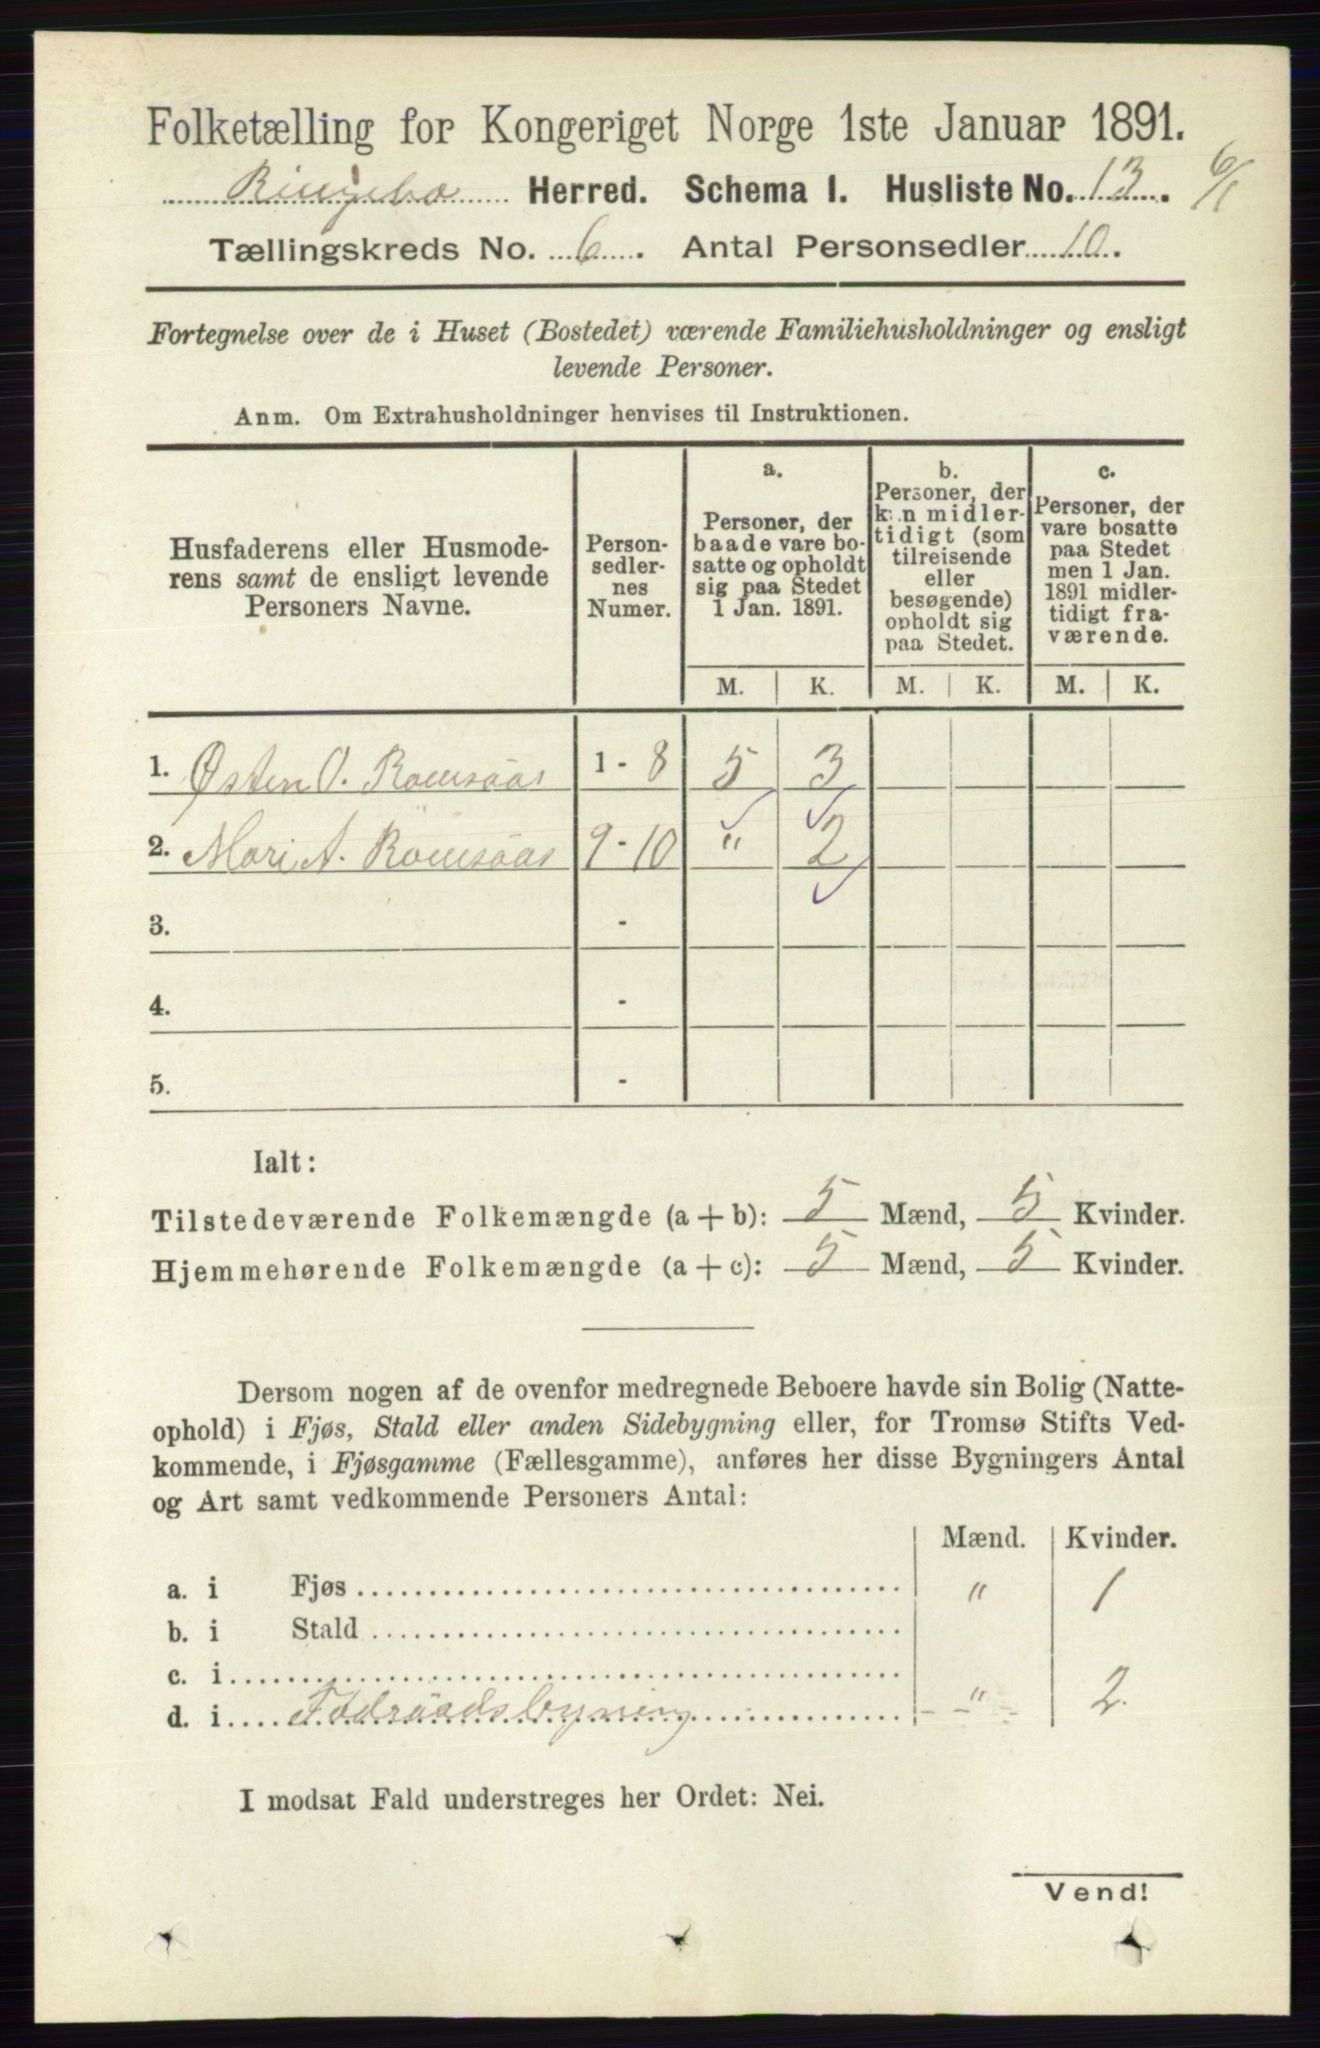 Folketælling for Kongeriget Norge 1ste Januar 1891.
Ringebo Herred. Schema I. Husliste No. 13. 6/1
Tællingskreds No. 6. Antal Personsedler 10.
Fortegnelse over de i Huset (Bostedet) værende Familiehusholdninger og ensligt
levende Personer.
Anm. Om Extrahusholdninger henvises til Instruktionen.
Husfaderens eller Husmode-
rens samt de ensligt levende
Personers Navne.
Person-
sedler-
nes
Numer.
a.
Personer, der
baade vare bo-
satte og opholdt
sig paa Stedet
1 Jan. 1891.
b.
Personer, der
kun midler-
tidigt (som
tilreisende
eller
besøgende)
opholdt sig
paa Stedet.
c.
Personer, der
vare bosatte
paa Stedet
men 1 Jan.
1891 midler-
tidigt fra-
værende.
M. K. M. K. M. K.
1. Østen O. Romsaas 1 - 8 5 3
2. Mari A. Romsaas 9 - 10 " 2
3. -
4. -
5. -
Ialt:
Tilstedeværende Folkemængde (a + b): 5 Mænd, 5 Kvinder.
Hjemmehørende Folkemængde (a + c): 5 Mænd, 5 Kvinder.
Dersom nogen af de ovenfor medregnede Beboere havde sin Bolig (Natte-
ophold) i Fjøs, Stald eller anden Sidebygning eller, for Tromsø Stifts Ved-
kommende, i Fjøsgamme (Fællesgamme), anføres her disse Bygningers Antal
og Art samt vedkommende Personers Antal:
Mænd. Kvinder.
a. i Fjøs " 1
b. i Stald
c. i
d. i Födraadsbyning - " - 2.
I modsat Fald understreges her Ordet: Nei.
Vend!